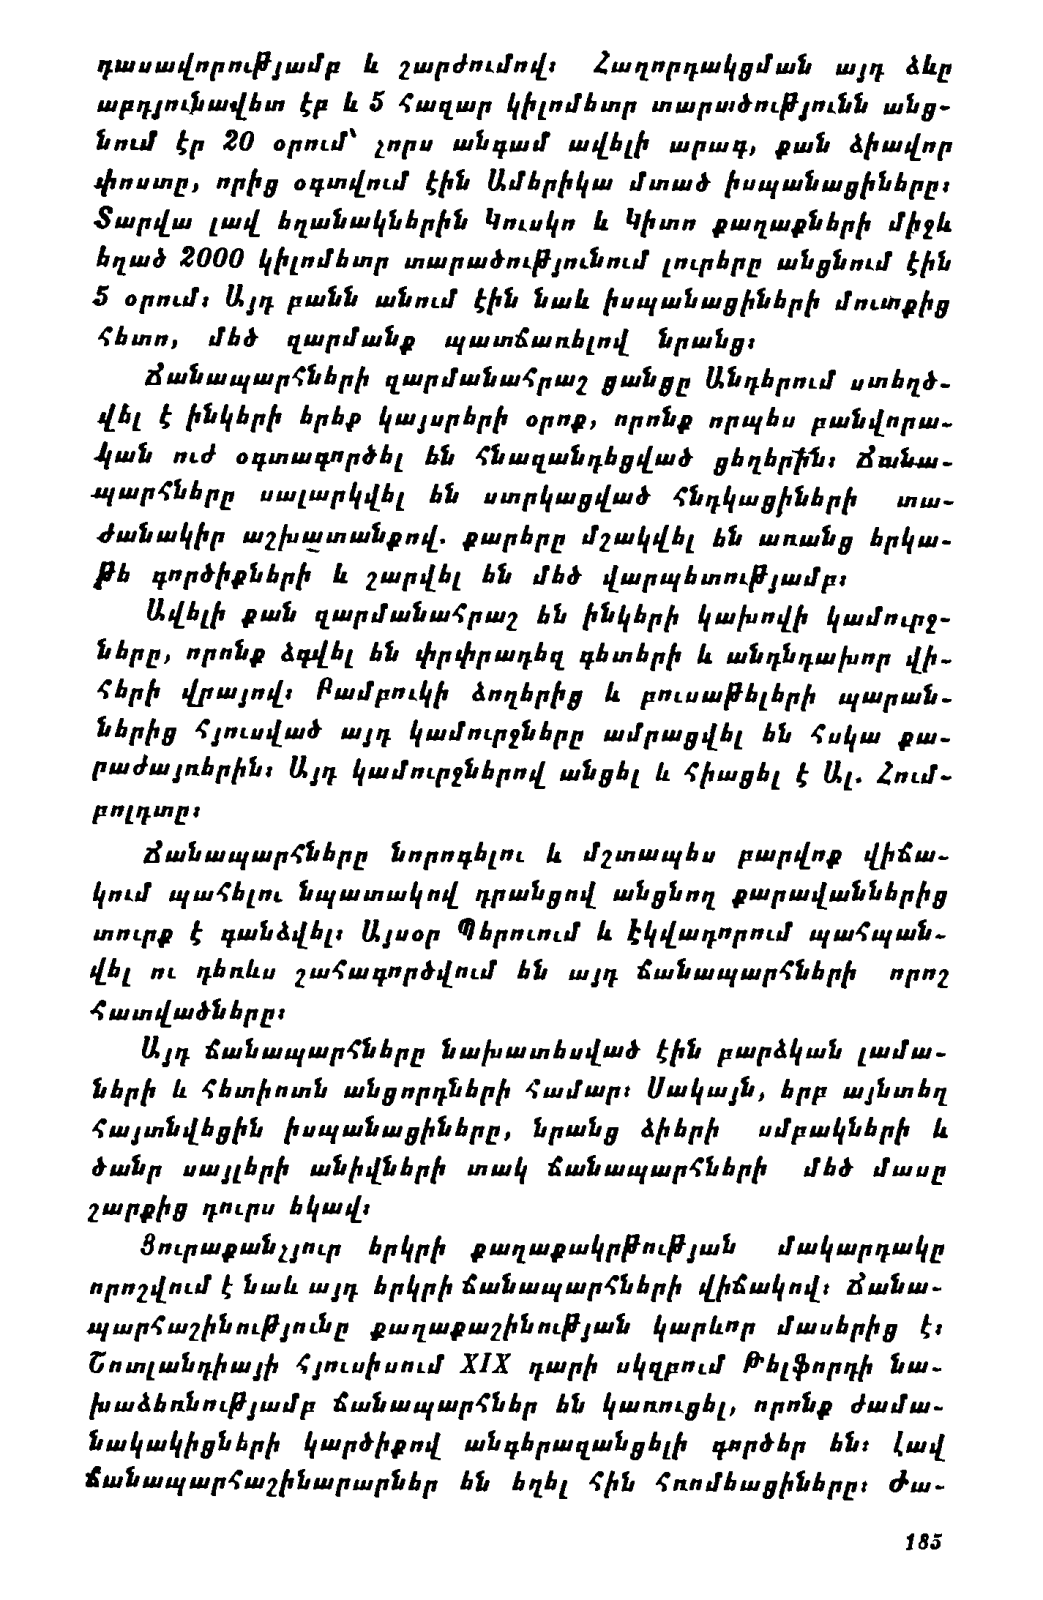 դասավորությամբ և շարժումով։ Հաղորդակցման այդ ձևը
արդյունավետ էր և 5 հազար կիլոմետր տարածությունն անց-
նում էր 20 օրում՝ չորս անգամ ավելի արագ, քան ձիավոր
փոստը, որից օգտվում էին Ամերիկա մտած իսպանացիները։
Տարվա լավ եղանակներին Կուսկո և Կիտո քաղաքների միջև
եղած 2000 կիլոմետր տարածությունում լուրերը անցնում էին
5 օրում։ Այդ բանն անում էին նաև իսպանացիների մուտքից
հետո, մեծ զարմանք պատճառելով նրանց։
Ճանապարհների զարմանահրաշ ցանցը Անդերում ստեղծ-
վել է ինկերի երեք կայսրերի օրոք, որոնք որպես բանվորա-
կան ուժ օգտագործել են հնազանդեցված ցեղերին։ Ճանա-
պարհները սալարկվել են ստրկացված հնդկացիների տա-
ժանակիր աշխատանքով. քարերը մշակվել են առանց երկա-
թե գործիքների և շարվել են մեծ վարպետությամբ։
Ավելի քան զարմանահրաշ են ինկերի կախովի կամուրջ-
ները, որոնք ձգվել են փրփրադեզ գետերի և անդնդախոր վի-
հերի վրայով։ Բամբուկի ձողերից և բուսաթելերի պարան-
ներից հյուսված այդ կամուրջները ամրացվել են հսկա քա-
րաժայռերին։ Այդ կամուրջներով անցել և հիացել է Ալ. Հում-
բոլդտը։
Ճանապարհները նորոգելու և մշտապես բարվոք վիճա-
կում պահելու նպատակով դրանցով անցնող քարավաններից
տուրք է գանձվել։ Այսօր Պերուում և Էկվադորում պահպան-
վել ու դեռևս շահագործվում են այդ ճանապարհների որոշ
հատվածները։
Այդ ճանապարհները նախատեսված էին բարձկան լամա-
ների և հետիոտն անցորդների համար։ Սակայն, երբ այնտեղ
հայտնվեցին իսպանացիները, նրանց ձիերի սմբակների և
ծանր սայլերի անիվների տակ ճանապարհների մեծ մասը
շարքից դուրս եկավ։
Յուրաքանչյուր երկրի քաղաքակրթության մակարդակը
որոշվում է նաև այդ երկրի ճանապարհների վիճակով։ Ճանա-
պարհաշինությունը քաղաքաշինության կարևոր մասերից է։
Շոտլանդիայի հյուսիսում XIX դարի սկզբում Թելֆորդի նա-
խաձեռնությամբ ճանապարհներ են կառուցել, որոնք ժամա-
նակակիցների կարծիքով անգերազանցելի գործեր են։ Լավ
ճանապարհաշինարարներ են եղել հին հռոմեացիները։ Ժա-
185